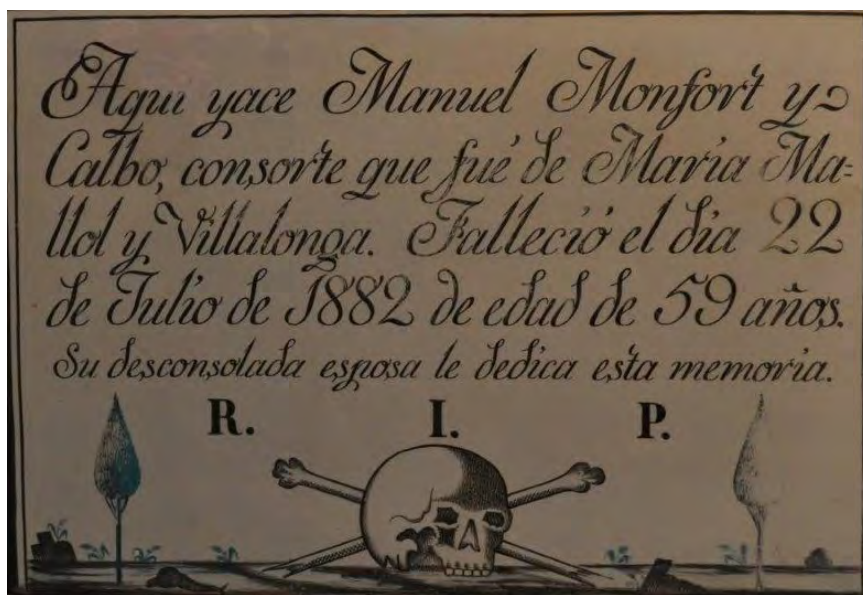 Aqui yace Manuel Monfort y
Calbo, consorte que fué de Maria Ma=
llol y Villalonga. Falleció el dia 22
de Julio de 1882 de edad de 59 años.
Su desconsolada esposa le dedica esta memoria.
R. I. P.